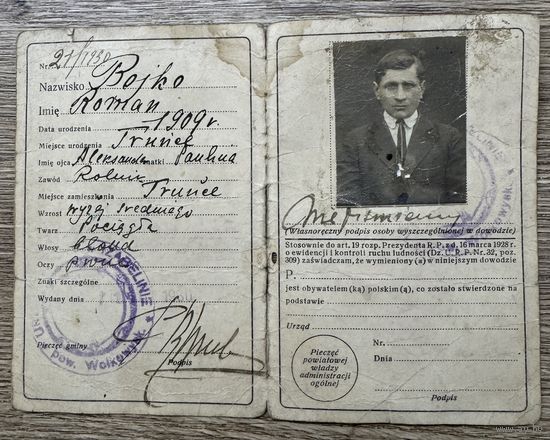 Nr. 21/1930
Nazwisko Bojko
Imię Roman
Data urodzenia 1909 r.
Miejsce urodzenia
Imię ojca Aleksander matki Paulina
Zawód Rolnik
Miejsce zamieszkania
Wzrost wyżej średniego
Twarz Pociągła
Włosy blond
Oczy piwne
Znaki szczególne
Wydany dnia
Pieczęć gminy
Podpis
pow. Wołkowysk
(Własnoręczny podpis osoby wyszczególnionej w dowodzie)
Stosownie do art. 19 rozp. Prezydenta R. P. z d. 16 marca 1928 r.
o ewidencji i kontroli ruchu ludności (Dz. U. R. P. Nr. 32, poz.
309) zaświadczam, że wymieniony (a) w niniejszym dowodzie
P.
jest obywatelem (ką) polskim (ą), co zostało stwierdzone na
podstawie
Urząd
Nr.
Dnia
Pieczęć
powiatowej
władzy
administracji
ogólnej
Podpis